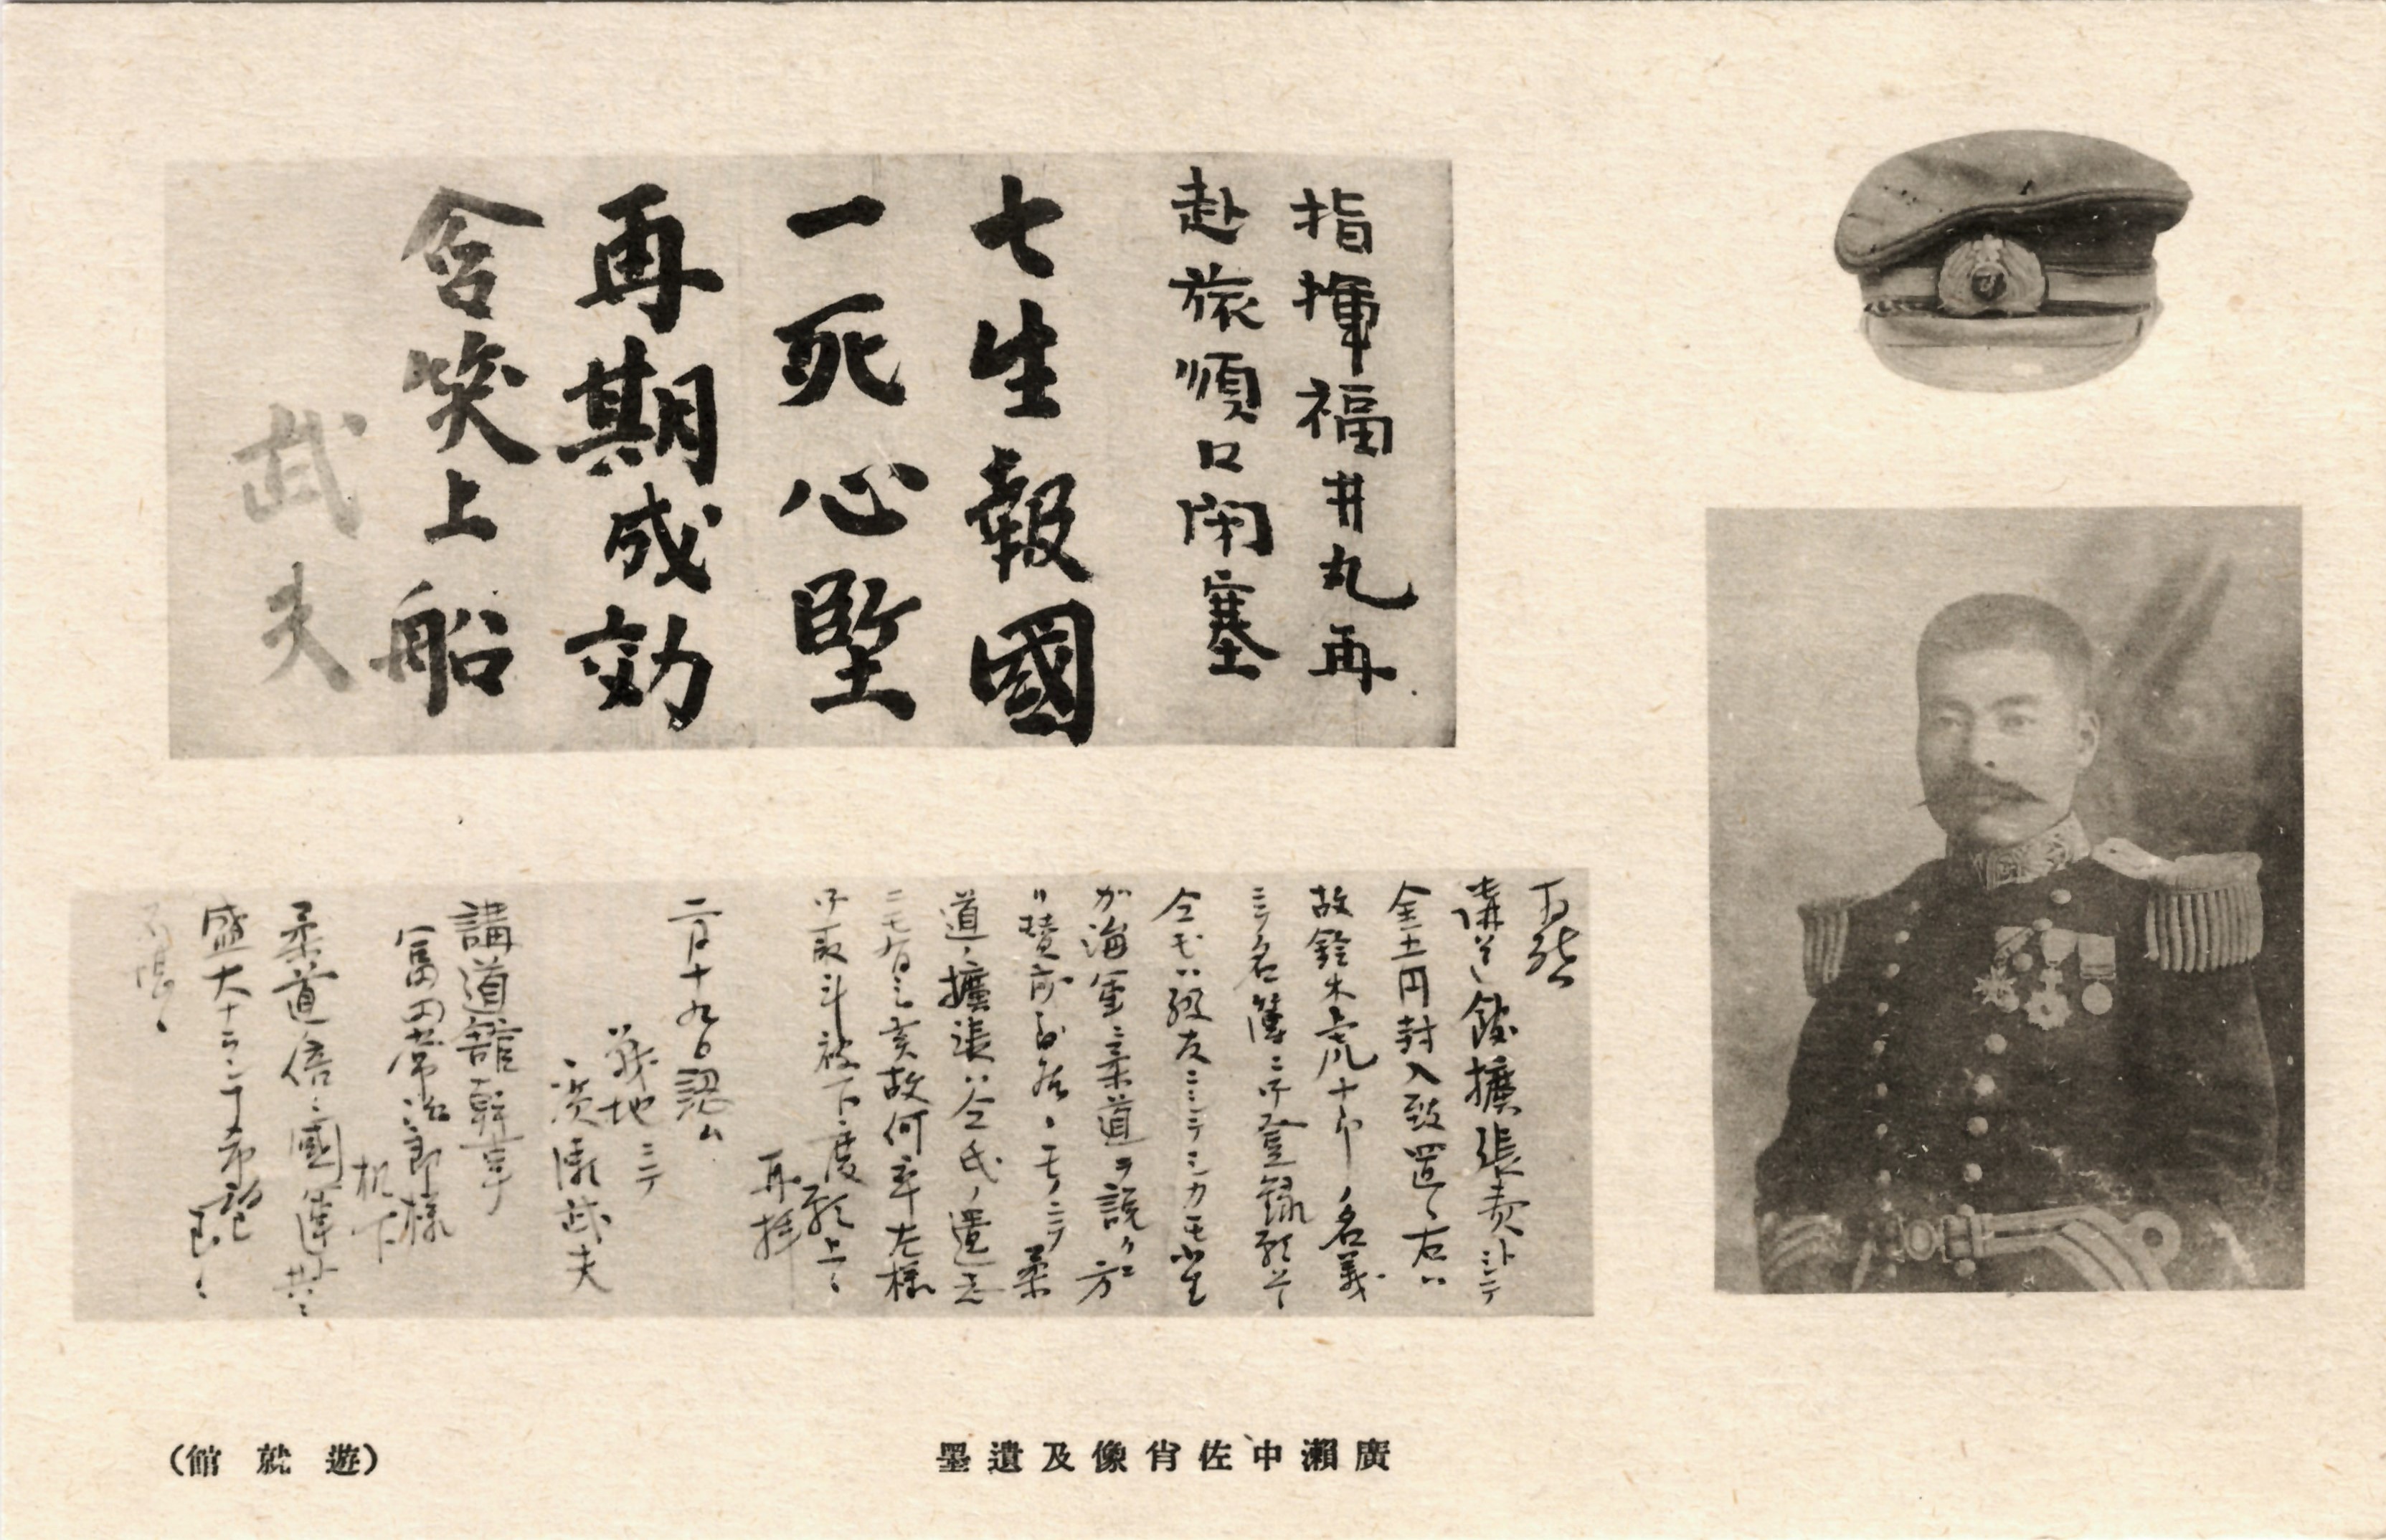 指揮福井丸再
赴旅順口閉塞
七生報國
一死心堅
再期成効
含笑上船
武夫
拝啓
講道館擴張費トシテ
金五円封入致置候右ハ
故鈴木虎十郎ノ名義
ニテ名簿ニ御登録願候
仝氏ハ級友ニシテシカモ
カ海軍ニ柔道ヲ説ク方
道ノ擴張ハ仝氏ノ遺志
ニモ有之候故何卒左様
御取斗被下度願上候
再拝
二月十九日認ム
戦地ニテ
廣瀬武夫
講道館幹事
富田常治郎様
机下
柔道倍々國運ト共ニ
盛大ナランコトヲ希望
廣瀨中佐肖像及遺墨
(遊就館)